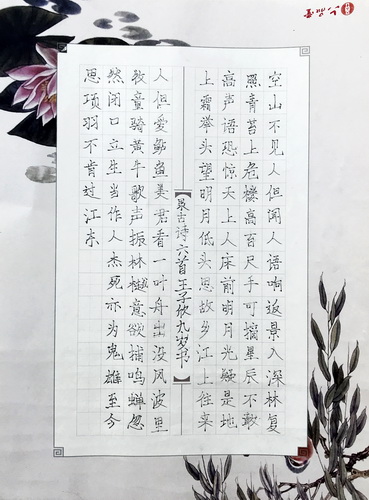 空山不见人但闻人语响返景入深林复
照青苔上危楼高百尺手可摘星辰不敢
高声语恐惊天上人床前明月光疑是地
上霜举头望明月低头思故乡江上往来
【录古诗六首王子九岁书】
人但愛鲈鱼美君看一叶舟出没风波里
牧童骑黄牛歌声振林樾意欲捕鸣蝉忽
然闭口立生当作人杰死亦为鬼雄至今
思项羽不肯过江东